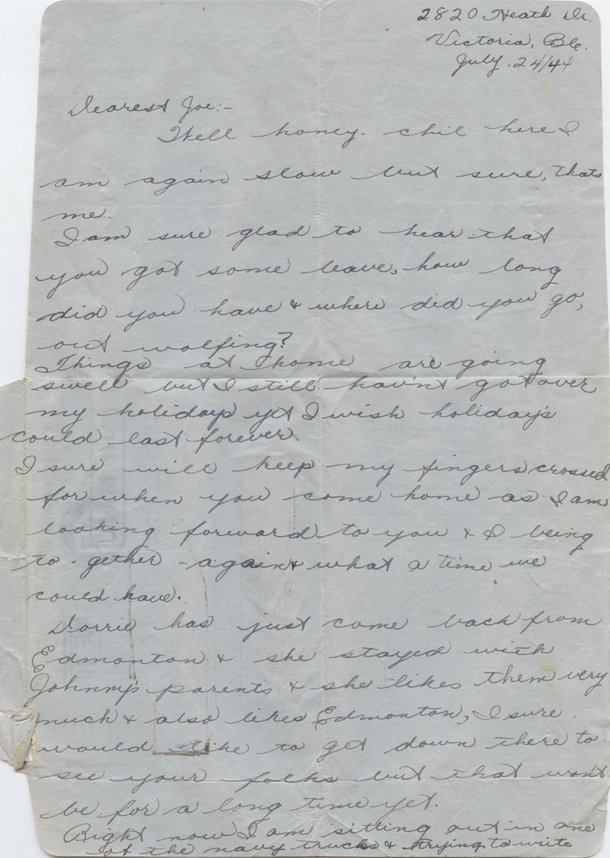 2820 Heath Dr.
Victoria, B.C.
July. 24/44
Dearest Joe:-
Well honey. chil here I
am again slow but sure, thats
me.
I am sure glad to hear that
you got some leave, how long
did you have & where did you go,
out wolfing?
Things at home are going
swell but I still havn't got over
my holiday yet I wish holidays
could last forever.
I sure will keep my fingers crossed
for when you come home as I am
looking forward to you & I being
to-gether again & what a time we
could have.
Dorrie has just come back from
Edmonton & she stayed with
Johnny's parents & she likes them very
much & also likes Edmonton, I sure
would like to get down there to
see your folks but that won't
be for a long time yet.
Right now I am sitting out in one
of the navy trucks & trying to write